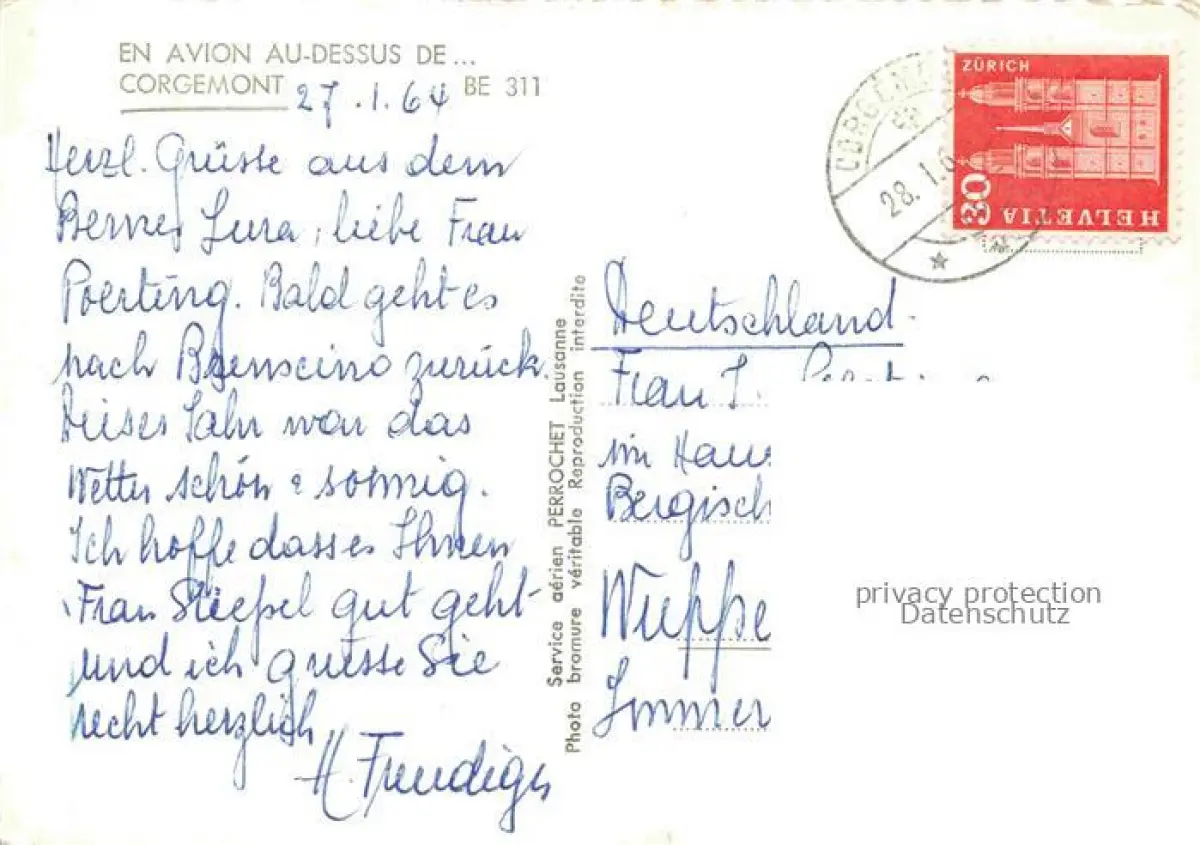 EN AVION AU-DESSUS DE...
CORGEMONT BE 311
27.1.64
Herzl. Grüsse aus dem
Berner Jura, liebe Frau
Poerting. Bald geht es
nach zurück.
Dieses Jahr war das
Wetter schön & sonnig.
Ich hoffe dass es Ihnen
Frau Stiepel gut geht
und ich grüsse Sie
recht herzlich
H. Freudiger
Service aérien PERROCHET Lausanne
Photo bromure véritable Reproduction interdite
ZÜRICH
30
HELVETIA
28.1.6
Deutschland.
Frau I.
im Haus
Bergisch
Wuppe
Sommer
privacy protection
Datenschutz